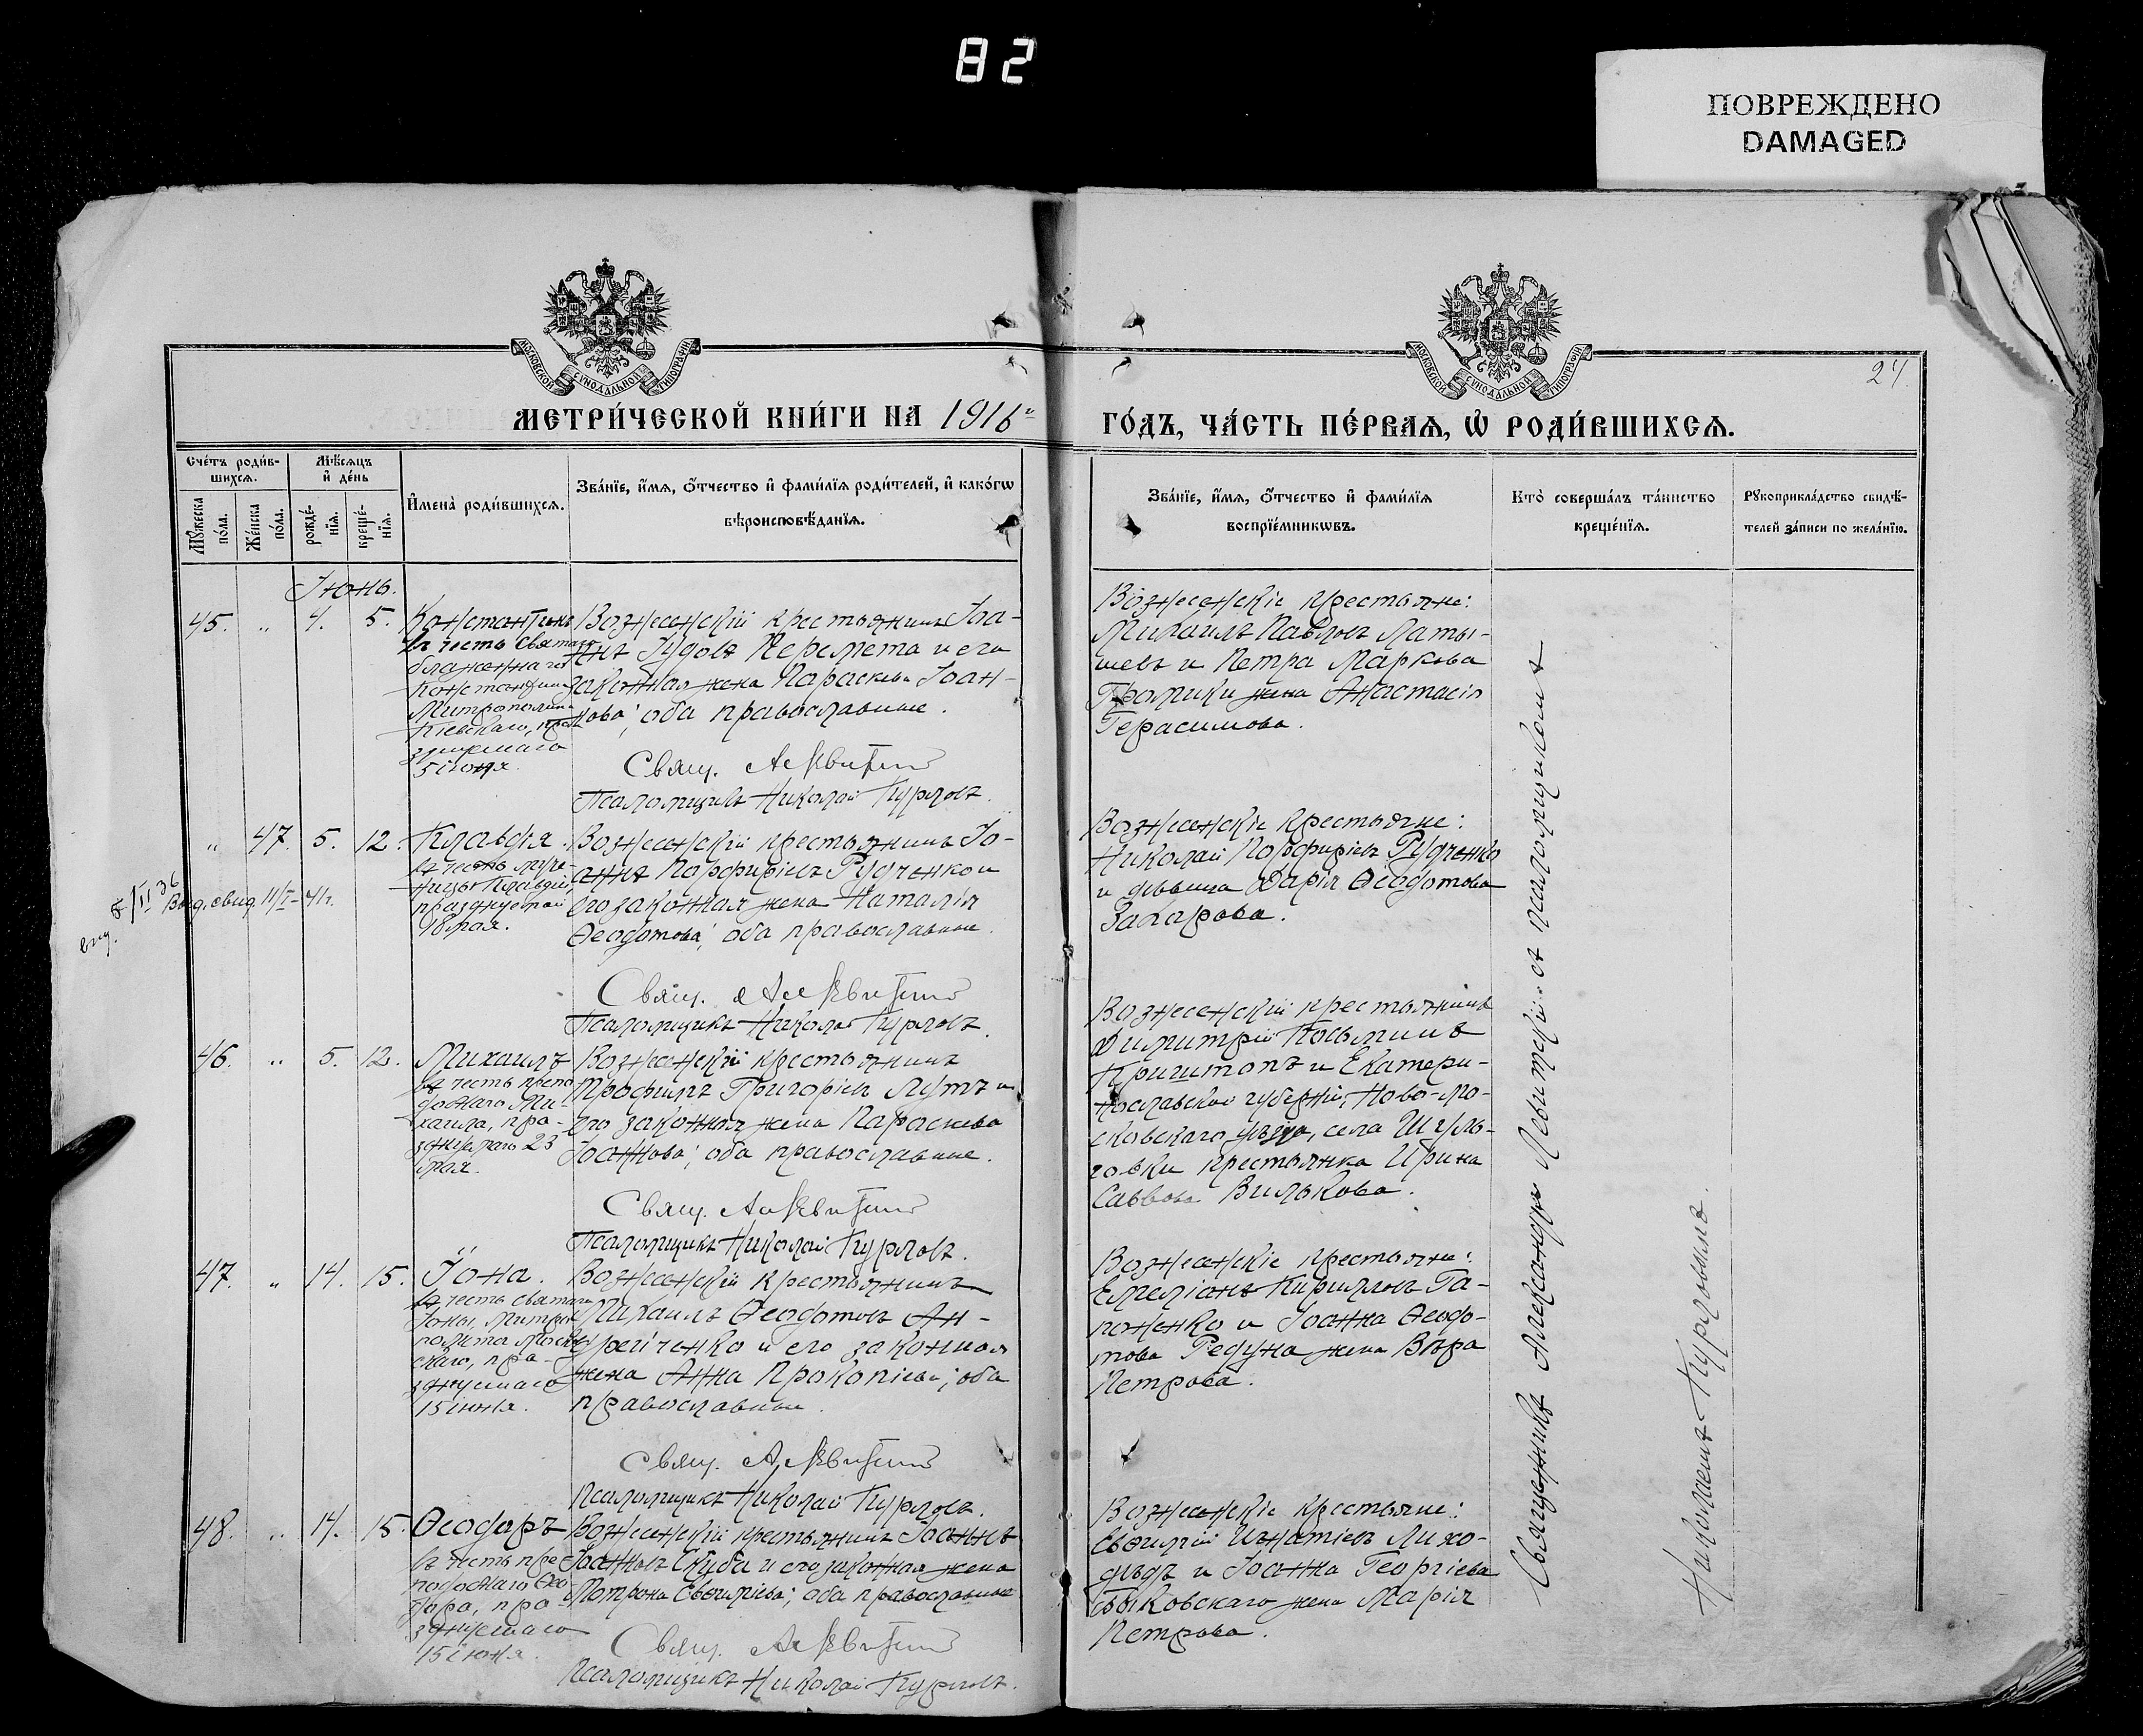 82
ПОВРЕЖДЕНО
DAMAGED
МОСКОВСКОЙ СѴНОДАЛЬНОЙ ТИПОГРАФІИ
МОСКОВСКОЙ СѴНОДАЛЬНОЙ ТИПОГРАФІИ
24.
МЕТРИ́ЧЕСКОЙ КНИ́ГИ НА 1916й
ГО́ДЪ, ЧА́СТЬ ПЕ́РВАѦ, Ѡ РОДИ́ВШИХСѦ.
Сче́тъ роди́в-
шихсѧ.
Мꙋжеска по́ла.
Же́нска по́ла.
Мѣ́сѧцъ
и҆ де́нь
рожде́-
нїѧ.
креще́-
нїѧ.
И҆мена̀ роди́вшихсѧ.
Зва́нїе, и҆́мѧ, ѻ҆́тчество и҆ фами́лїѧ роди́телей, и҆ како́гѡ
вѣроисповѣ́данїѧ.
Зва́нїе, и҆́мѧ, ѻ҆́тчество и҆ фами́лїѧ
воспрїе́мникѡвъ.
Кто̀ соверша́лъ та́инство
креще́нїѧ.
Рꙋкоприкла́дство свидѣ́-
телей за́писи по жела́нїю.
Іюнь.
45. „ 4. 5.
Константинъ
въ честь Святаго
блаженнаго
Константина
Митрополита
Кіевскаго, пра-
зднуемаго
5 іюня.
Вознесенскій крестьянинъ Іоа-
ннъ Іудовъ Перемета и его
законная жена Параскева Іоан-
нова; оба православные.
Свящ. А. Левитскій
Псаломщикъ Николай Курловъ.
Вознесенскіе крестьяне:
Михаилъ Павловъ Латы-
шевъ и Петра Маркова
Громики жена Анастасія
Герасимова.
„ 47. 5. 12.
Клавдія.
въ честь муче-
ницы Клавдіи,
празднуемой
18 мая.
Выд. свид. 11/I-41г.
Вознесенскій крестьянинъ Іо-
аннъ Порфиріевъ Рудченко и
его законная жена Наталія
Ѳеодотова; оба православные.
Свящ. А. Левитскій
Псаломщикъ Николай Курловъ.
Вознесенскіе крестьяне:
Николай Порфиріевъ Рудченко
и дѣвица Дарія Ѳеодотова
Захарова.
46. „ 5. 12.
Михаилъ
въ честь препо-
добнаго Ми-
хаила, пра-
зднуемаго 23
мая.
Вознесенскій крестьянинъ
Трофимъ Григоріевъ Лутъ и
его законная жена Параскева
Іоаннова; оба православные.
Свящ. А. Левитскій
Псаломщикъ Николай Курловъ.
Вознесенскій крестьянинъ
Димитрій Косьминъ
Криштопъ и Екатери-
нославской губерніи, Ново-мо-
сковскаго уѣзда, села
крестьянка Ирина
Саввова Вилькова.
47. „ 14. 15.
Іона.
въ честь святаго
Іоны, Митро-
полита Москов-
скаго, пра-
зднуемаго
15 іюня.
Вознесенскій крестьянинъ
Михаилъ Ѳеодотовъ Ан-
дрейченко и его законная
жена Анна Прокопіева; оба
православные.
Свящ. А. Левитскій
Псаломщикъ Николай Курловъ.
Вознесенскіе крестьяне:
Емеліанъ Кирилловъ Га-
поненко и Іоанна Ѳеодо-
това Редуна жена Вѣра
Петрова.
48. „ 14. 15.
Ѳеодоръ
въ честь пре-
подобнаго Ѳео-
дора, пра-
зднуемаго
15 іюня.
Вознесенскій крестьянинъ Іоаннъ
Іоанновъ Скуба и его законная жена
Матрона Евѳиміева; оба православные
Свящ. А. Левитскій
Псаломщикъ Николай Курловъ.
Вознесенскіе крестьяне:
Евѳимій Игнатіевъ Лихо-
дѣдъ и Іоанна Георгіева
Быковскаго жена Марія
Петрова.
Священникъ Александръ Левитскій съ псаломщикомъ
Николаемъ Курловымъ.